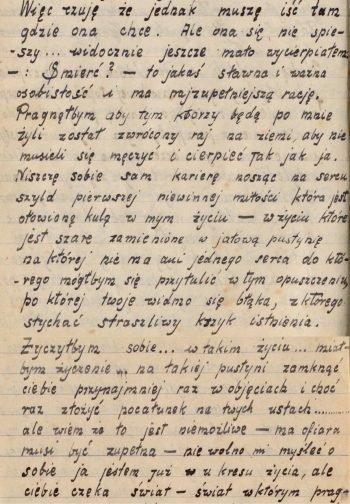 Więc czuję że jednak muszę iść tam
gdzie ona chce. Ale ona się nie spie-
-szy... widocznie jeszcze mało wycierpiałem
-: Śmierć? - to jakaś sławna i ważna
osobistość i ma najzupełniejszą rację.
Pragnąłbym aby tym którzy będą po mnie
żyli został zwrócony raj na ziemi, aby nie
musieli się męczyć i cierpieć jak jak ja.
Niszczę sobie sam karierę nosząc na sercu
szyld pierwszej niewinnej miłości która jest
ołowioną kulą w mym życiu — w życiu które
jest szare zamienione w jałową pustynię
na której nie ma ani jednego serca do któ-
-rego mógłbym się przytulić w tym opuszczeniu,
po której twoje widmo się błąka, z którego
słychać straszliwy krzyk istnienia.
Życzyłbym sobie... w takim życiu... miał-
bym życzenie... na takiej pustyni zamknąć
ciebie przynajmniej raz w objęciach i choć
raz złożyć pocałunek na twych ustach.........
ale wiem że to jest niemożliwe — ma ofiara
musi być zupełna — nie wolno mi myśleć o
sobie ja jestem już u kresu życia, ale
ciebie czeka świat — świat w którym pragn